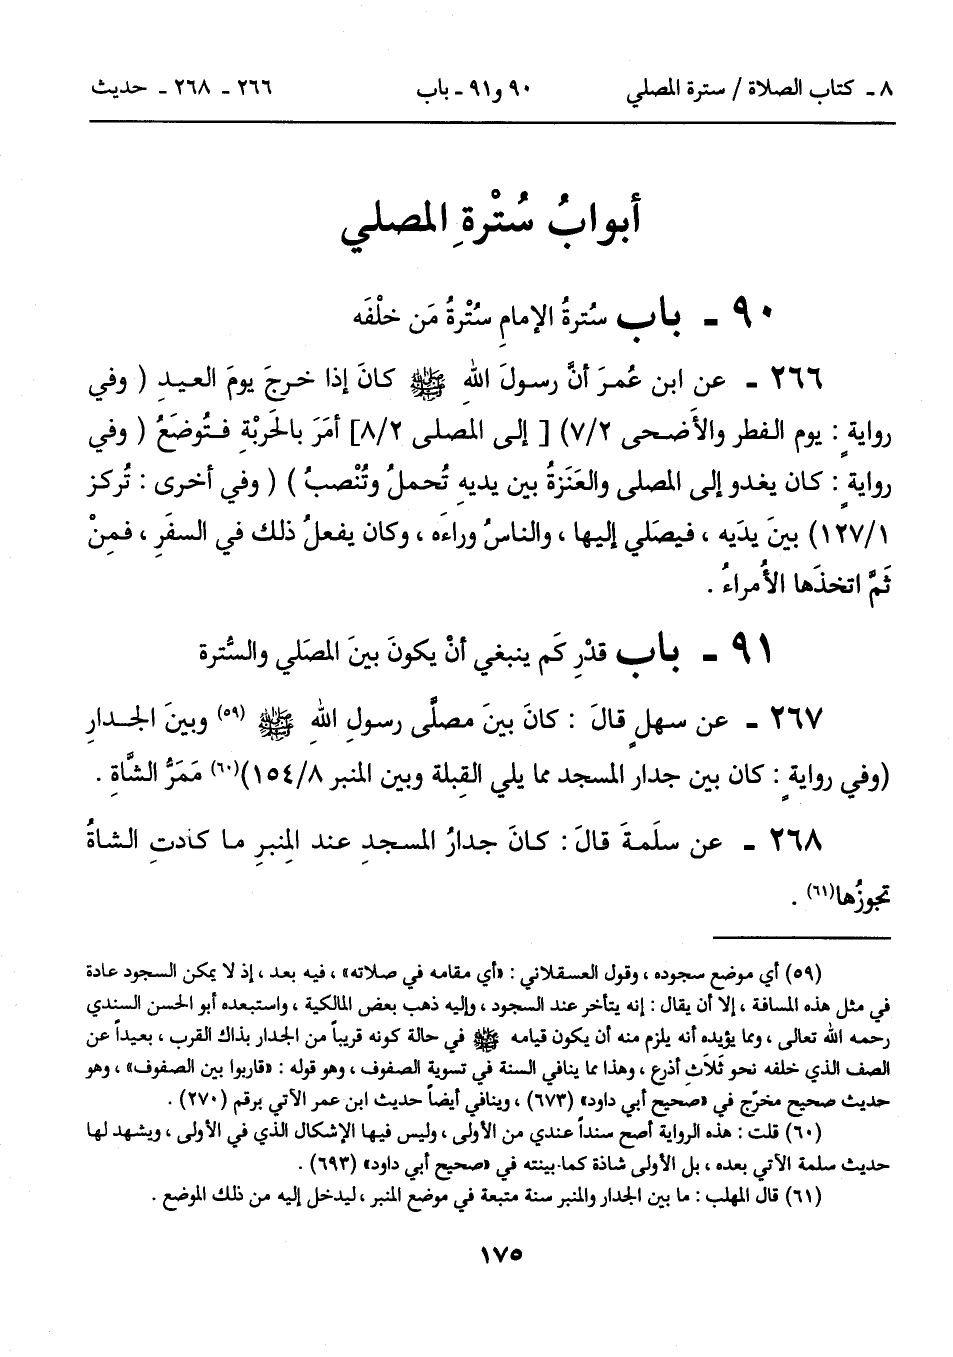 ٨ - كتاب الصلاة / سترة المصلي    ٩٠ و٩١ - باب    ٢٦٦ - ٢٦٨ - حديث
أبوابُ سُتْرةِ المصلي
٩٠ - باب سُترةُ الإمامِ سُتْرةُ مَن خلْفَه
٢٦٦ - عن ابن عُمرَ أنَّ رسولَ اللهِ ﷺ كانَ إذا خرجَ يومَ العيدِ ( وفي
روايةٍ : يوم الفطر والأضحى ٧/٢) [ إلى المصلى ٨/٢] أمَرَ بالحَربْةِ فتُوضَعُ ( وفي
روايةٍ : كان يغدو إلى المصلى والعَنَزةُ بين يديهِ تُحملُ وتُنْصبُ ) ( وفي أخرى : تُركز
١٢٧/١) بينَ يدَيه ، فيصَلي إليها ، والناسُ وراءَه ، وكان يفعلُ ذلك في السفَرِ ، فمِنْ
ثَمَّ اتخذَها الأُمراءُ .
٩١ - باب قدْرِ كَم ينبغي أنْ يكونَ بينَ المصَلي والسُّترة
٢٦٧ - عن سهلٍ قالَ : كانَ بينَ مصلَّى رسولِ اللهِ ﷺ (٥٩) وبينَ الجدارِ
(وفي روايةٍ : كان بين جدار المسجد مما يلي القِبلة وبين المنبر ١٥٤/٨)(٦٠) مَمَرُّ الشَّاةِ .
٢٦٨ - عن سلَمةَ قالَ : كانَ جدارُ المسجدِ عند المِنبرِ ما كادتِ الشاةُ
تجوزُها(٦١) .
(٥٩) أي موضع سجوده ، وقول العسقلاني : «أي مقامه في صلاته» ، فيه بعد ، إذ لا يمكن السجود عادة
في مثل هذه المسافة ، إلا أن يقال : إنه يتأخر عند السجود ، وإليه ذهب بعض المالكية ، واستبعده أبو الحسن السندي
رحمه الله تعالى ، ومما يؤيده أنه يلزم منه أن يكون قيامه ﷺ في حالة كونه قريباً من الجدار بذاك القرب ، بعيداً عن
الصف الذي خلفه نحو ثَلاَثِ أذرع ، وهذا مما ينافي السنة في تسوية الصفوف ، وهو قوله : «قاربوا بين الصفوف» ، وهو
حديث صحيح مخرّج في «صحيح أبي داود» (٦٧٣) ، وينافي أيضاً حديث ابن عمر الآتي برقم (٢٧٠) .
(٦٠) قلت : هذه الرواية أصح سنداً عندي من الأولى ، وليس فيها الإشكال الذي في الأولى ، ويشهد لها
حديث سلمة الآتي بعده ، بل الأولى شاذة كما بينته في «صحيح أبي داود» (٦٩٣) .
(٦١) قال المهلب : ما بين الجدار والمنبر سنة متبعة في موضع المنبر ، ليدخل إليه من ذلك الموضع .
١٧٥